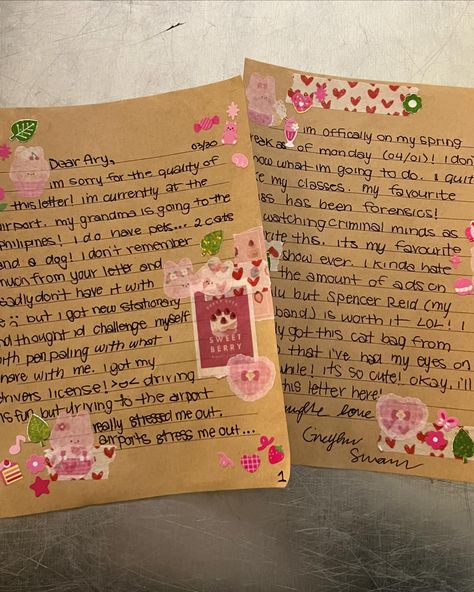 03/20
Dear Ary,
im sorry for the quality of
this letter! i'm currently at the
airport. my grandma is going to the
Philipines! I do have pets... 2 cats
and a dog! I don't remember
much from your letter and
don't have it with
me :( but i got new stationary
and thought id challenge myself
with penpaling with what i
have with me. I got my
drivers license! >o< driving
is fun but driving to the airport
really stressed me out.
airports stress me out...
SWEET
BERRY
1
im offically on my spring
break as of monday (04/01)! I don't
know what im going to do. i quite
like my classes. my favourite
class has been forensics!
watching criminal minds as
write this. its my favourite
show ever. i kinda hate
the amount of ads on
but Spencer Reid (my
husband) is worth it LOL! i
got this cat bag from
that i've had my eyes on
while! it's so cute! okay, i'll
this letter here!
love